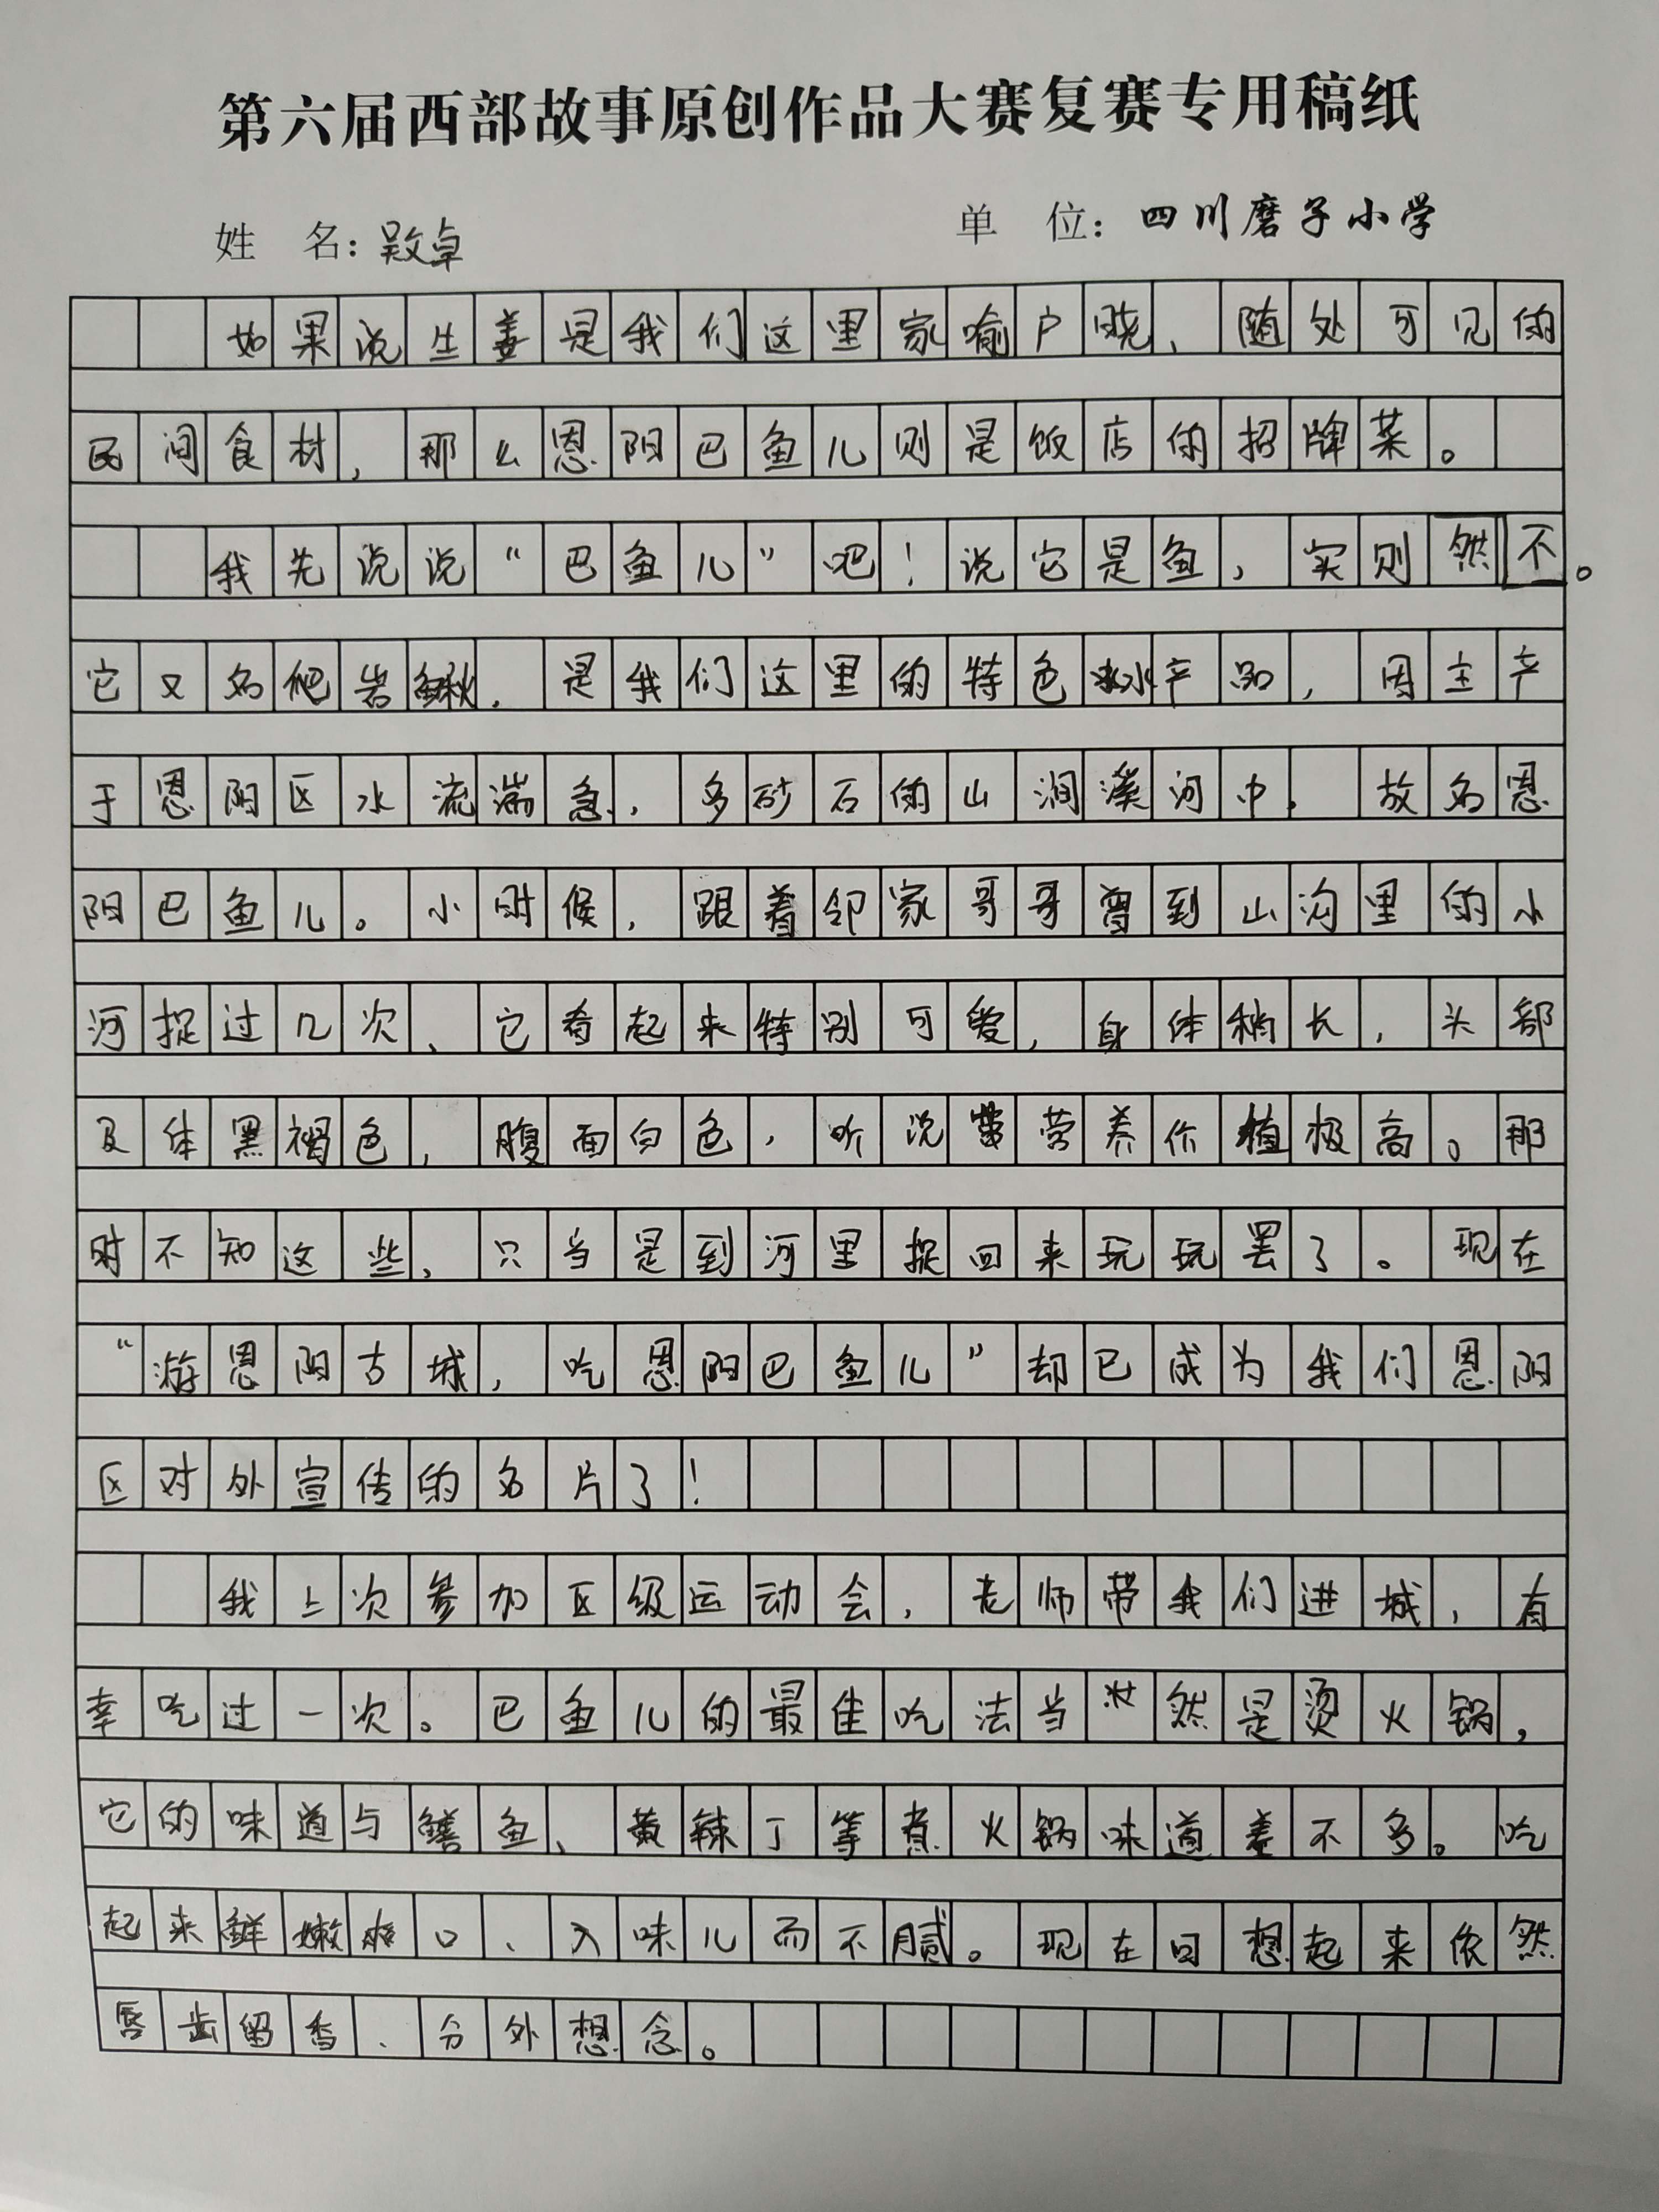 第六届西部故事原创作品大赛复赛专用稿纸
姓 名：吴文卓 单 位：四川磨子小学
如果说生姜是我们这里家喻户晓、随处可见的
民间食材，那么恩阳巴鱼儿则是饭店的招牌菜。
我先说说“巴鱼儿”吧！说它是鱼，实则然不。
它又名爬岩鳅，是我们这里的特色水产品，因主产
于恩阳区水流湍急，多砂石的山涧溪河中，故名恩
阳巴鱼儿。小时候，跟着邻家哥哥曾到山沟里的小
河捉过几次、它看起来特别可爱，身体稍长，头部
及体黑褐色，腹面白色，听说营养价值极高。那
时不知这些，只当是到河里捉回来玩玩罢了。现在
“游恩阳古城，吃恩阳巴鱼儿”却已成为我们恩阳
区对外宣传的名片了！
我上次参加区级运动会，老师带我们进城，有
幸吃过一次。巴鱼儿的最佳吃法当然是烫火锅，
它的味道与鳝鱼、黄辣丁等煮火锅味道差不多。吃
起来鲜嫩爽口、入味儿而不腻。现在回想起来依然
唇齿留香、分外想念。